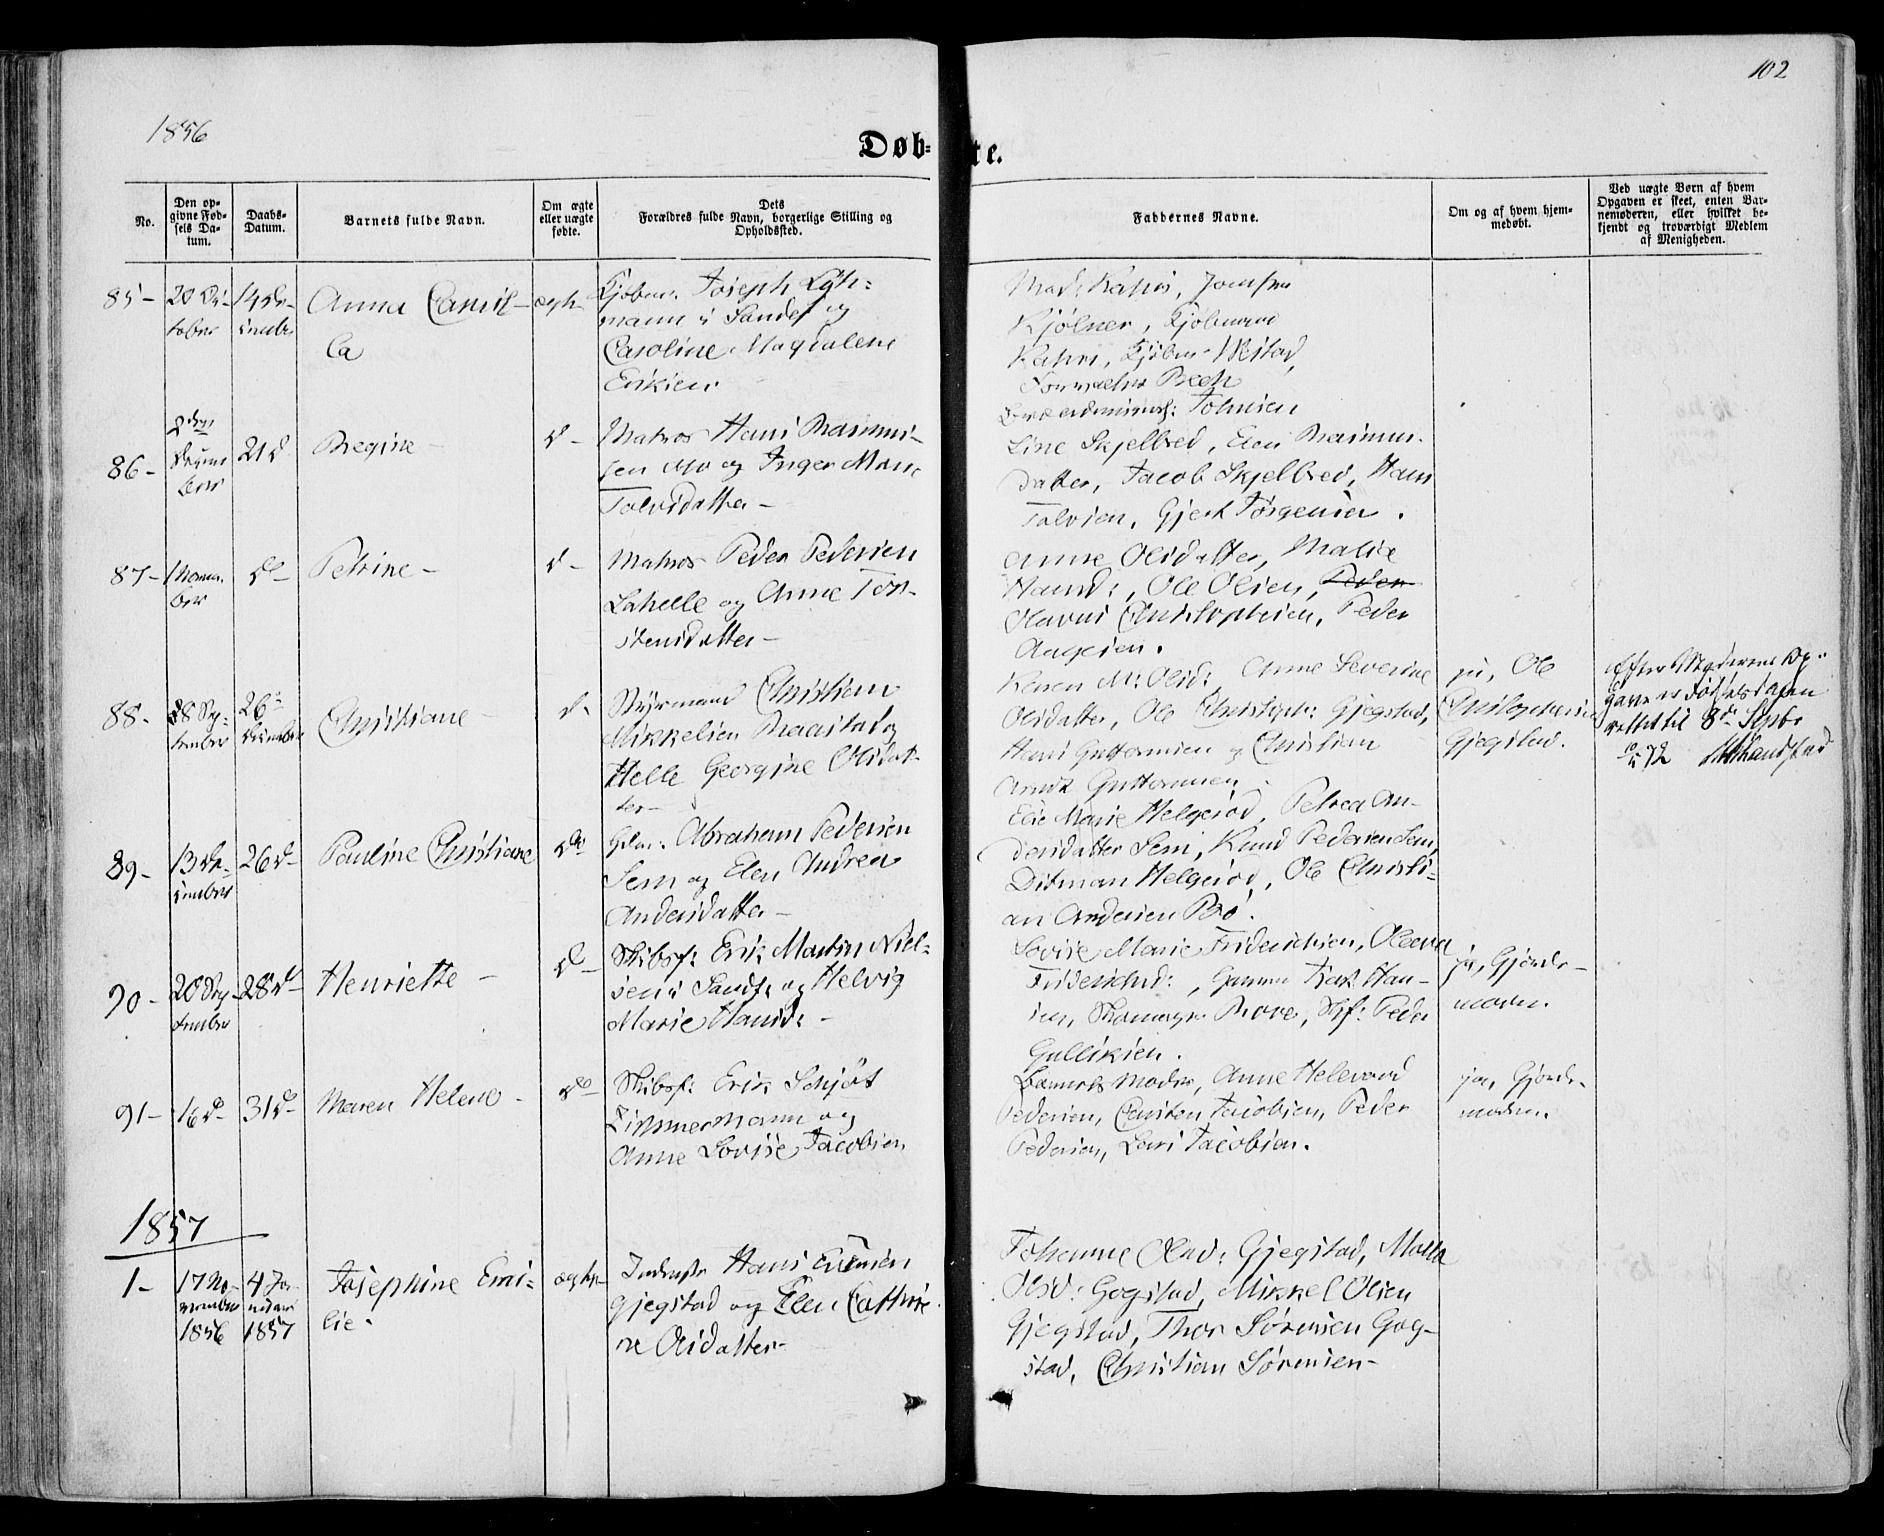 102
1856
Døbte.
No.
Den op-
givne Fød-
sels Da-
tum.
Daabs-
Datum.
Barnets fulde Navn.
Om ægte
eller uægte
fødte.
Dets
Forældres fulde Navn, borgerlige Stilling og
Opholdssted.
Faddernes Navne.
Om og af hvem hjem-
medøbt.
Ved uægte Børn af hvem
Opgaven er skeet, enten Bar-
nemoderen, eller hvilket be-
kjendt og troværdigt Medlem
af Menigheden.
85-
20 Oc-
tober
14 De-
cember
Anna Camil-
la
ægte
Kjøbm: Joseph Leh-
mann i Sandef og
Caroline Magdalene
Eriksen.
Mad: Kahrs, Jomfru
Kjølner, Kjøbmand
Kahrs, Kjøbm
Beck
86-
2den
Decem
ber
21 d
Regine -
d -
Matros Hans Rasmus-
sen Mo og Inger Marie
Talvsdatter -
Line Skjelbred, Elen Rasmus-
datter, Jacob Skjelbred, Hans
Talvsen, Gjert Jørgensen.
87-
1 Novem-
ber
do-
Petrine -
d -
Matros Peder Pedersen
Lahelle og Anne Tor-
stensdatter -
Anne Olsdatter, Malie
Hansd:, Ole Olsen, Peder
Olavus Christophersen, Peder
Aagesen.
88-
28 Sep-
tember
26-
December
Christiane -
d-
Styrmand Christian
Mikkelsen Raastad og
Helle Georgine Olsdat-
ter -
Karen M: Olsd:, Anne Severine
Olsdatter, Ole Christoph: Gjegstad,
Hans Guttormsen og Christian
Arndt Guttormsen.
ja, Ole
Christophersen
Gjegstad.
Efter Moderens Op-
gave er Fødselsdagen
rettet til 8de Septbr
72
89-
13 De-
cember
26 d-
Pauline Christiane
do
Gdm: Abraham Pedersen
Sem og Elen Andrea
Andersdatter -
Else Marie Helgerød, Petrea An-
dersdatter Sem, Knud Pedersen Sem,
Ditman Helgerød, Ole Christi-
an Andersen Bø.
90-
20 Sep-
tember
28 d-
Henriette -
do -
Skibsf: Erik Martin Niel-
sen i Sandef og Helvig
Marie Hansd: -
Lovise Marie Friderichsen, Oleana
Friderichsd:, Isak Han-
sen, Rove, Skf: Peder
Gulliksen.
ja, Gjorde-
moder.
91-
16 d-
31 d-
Maren Helene -
do -
Skibsf: Erik Schjøt
Zimmermann og
Anne Lovise Jacobsen
Barnets Moder, Anne Helevard
Pedersen, Carsten Jacobsen, Peder
Pedersen, Lars Jacobsen.
ja, Gjorde-
moder.
1857
1-
17 No-
vember
1856
4 Ja-
nuar
1857
Josephine Emi-
lie.
ægte-
Inderst Hans Evensen
Gjegstad og Elen Cathri-
ne Olsdatter -
Johanne Olsd: Gjegstad, Malla
Olsd: Gogstad, Mikkel Olsen
Gjegstad, Thor Sørensen Gog-
stad, Christian Sørensen -